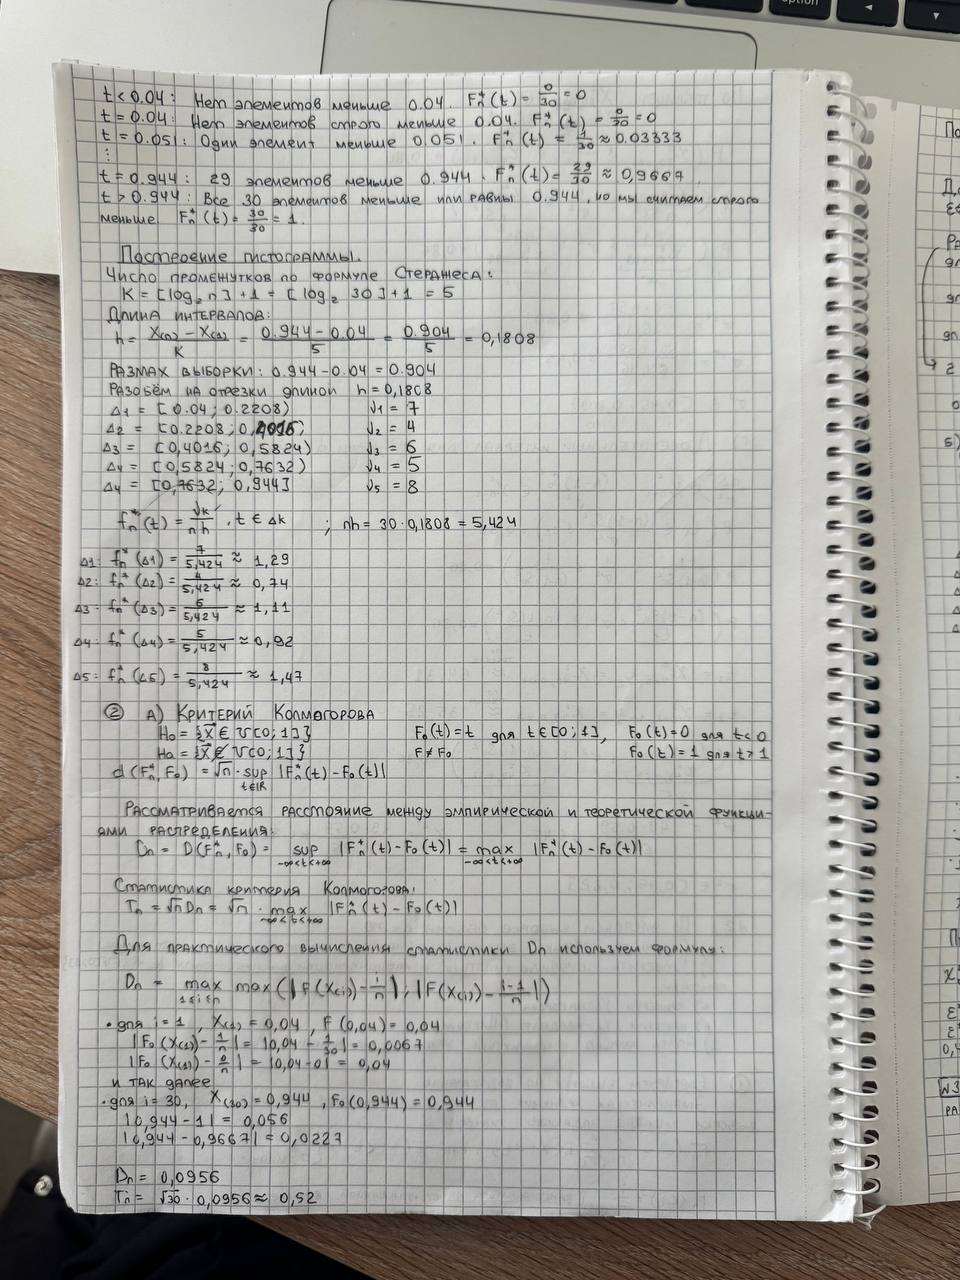 t < 0.04: Нет элементов меньше 0.04. F*n(t) = 0/30 = 0
t = 0.04: Нет элементов строго меньше 0.04. F*n(t) = 0/30 = 0
t = 0.051: Один элемент меньше 0.051. F*n(t) = 1/30 ≈ 0.03333
⋮
t = 0.944: 29 элементов меньше 0.944. F*n(t) = 29/30 ≈ 0,9667.
t > 0.944: Все 30 элементов меньше или равны 0.944, но мы считаем строго
меньше F*n(t) = 30/30 = 1.
Построение гистограммы.
Число промежутков по формуле Стерджеса:
K = [log₂ n] + 1 = [log₂ 30] + 1 = 5
Длина интервалов:
h = (X(n) - X(1))/K = (0.944 - 0.04)/5 = 0.904/5 = 0,1808
Размах выборки: 0.944 - 0.04 = 0.904
Разобьём на отрезки длиной h = 0,1808
Δ1 = [0.04; 0.2208) ν1 = 7
Δ2 = [0.2208; 0,4016) ν2 = 4
Δ3 = [0,4016; 0,5824) ν3 = 6
Δ4 = [0,5824; 0,7632) ν4 = 5
Δ4 = [0,7632; 0,944] ν5 = 8
f*n(t) = νk/(nh), t ∈ Δk ; nh = 30·0,1808 = 5,424
Δ1: f*n(Δ1) = 7/5,424 ≈ 1,29
Δ2: f*n(Δ2) = 4/5,424 ≈ 0,74
Δ3: f*n(Δ3) = 6/5,424 ≈ 1,11
Δ4: f*n(Δ4) = 5/5,424 ≈ 0,92
Δ5: f*n(Δ5) = 8/5,424 ≈ 1,47
② А) Критерий Колмогорова
H₀ = {X⃗ ∈ U[0;1]} F₀(t) = t для t ∈ [0;1], F₀(t) = 0 для t < 0
Hа = {X⃗ ∉ U[0;1]} F ≠ F₀ F₀(t) = 1 для t > 1
d(F*n, F₀) = √n · sup t∈R |F*n(t) - F₀(t)|
Рассматривается расстояние между эмпирической и теоретической функци-
ями распределения:
Dn = D(F*n, F₀) = sup -∞<t<+∞ |F*n(t) - F₀(t)| = max -∞<t<+∞ |F*n(t) - F₀(t)|
Статистика критерия Колмогорова:
Tn = √n Dn = √n · max -∞<t<+∞ |F*n(t) - F₀(t)|
Для практического вычисления статистики Dn используем формулу:
Dn = max 1≤i≤n max(|F(X(i)) - i/n|; |F(X(i)) - (i-1)/n|)
• для i = 1, X(1) = 0,04, F(0,04) = 0,04
|F₀(X(1)) - 1/n| = |0,04 - 1/30| = 0,0067
|F₀(X(1)) - 0/n| = |0,04 - 0| = 0,04
и так далее
• для i = 30, X(30) = 0,944, F₀(0,944) = 0,944
|0,944 - 1| = 0,056
|0,944 - 0,9667| = 0,0227
Dn = 0,0956
Tn = √30 · 0,0956 ≈ 0,52